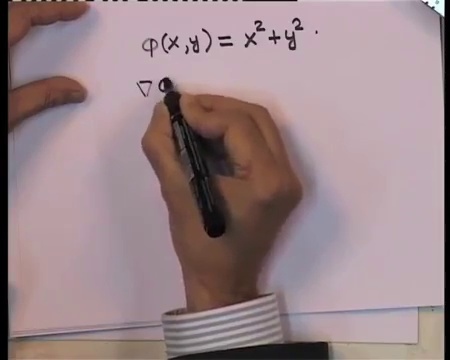 φ(x,y) = x² + y².
∇